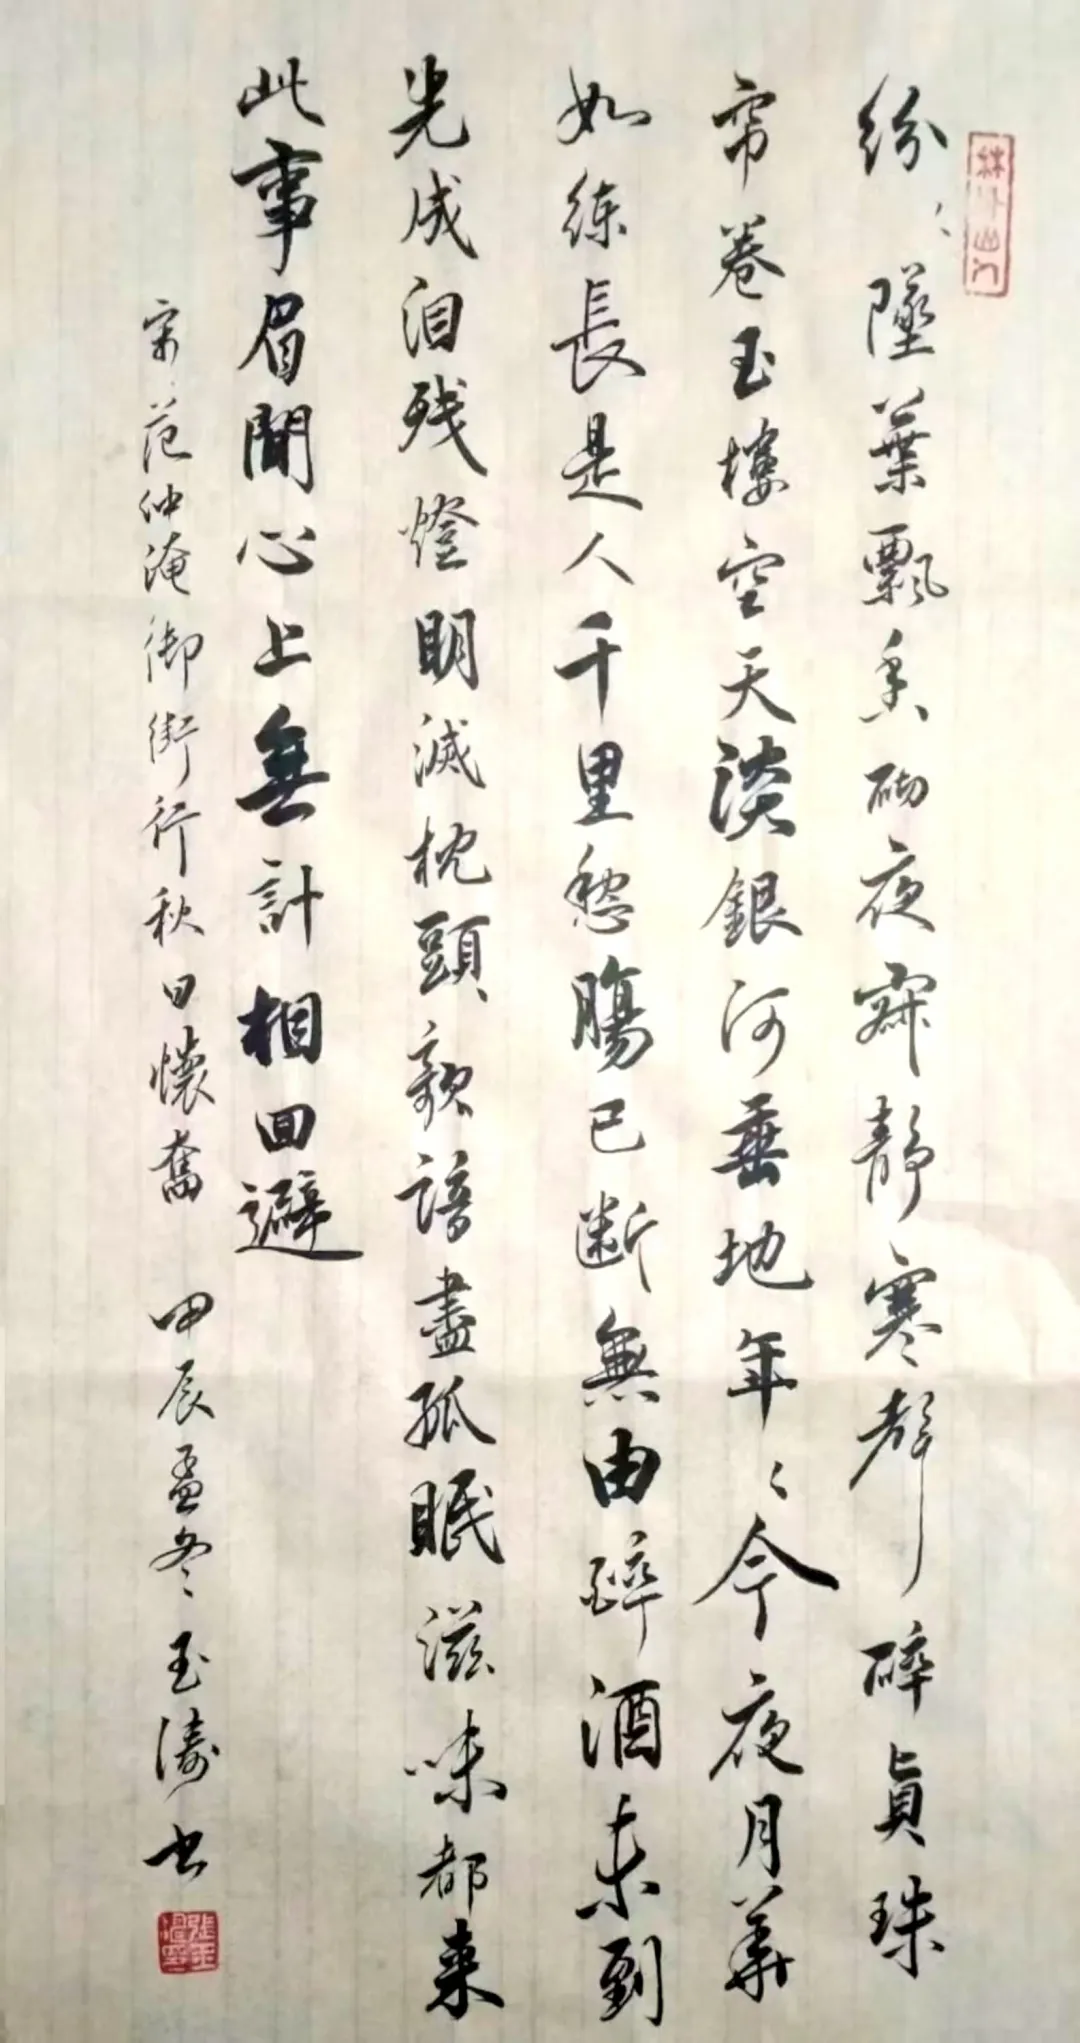 纷〻墜葉飄香砌夜寂静寒聲碎真珠
帘卷玉樓空天淡銀河垂地年〻今夜月華
如练長是人千里愁腸已断無由醉酒未到
先成泪残燈明滅枕頭欹諳盡孤眠滋味都来
此事眉間心上無計相回避
宋范仲淹御街行秋日懷舊 甲辰孟冬玉涛书